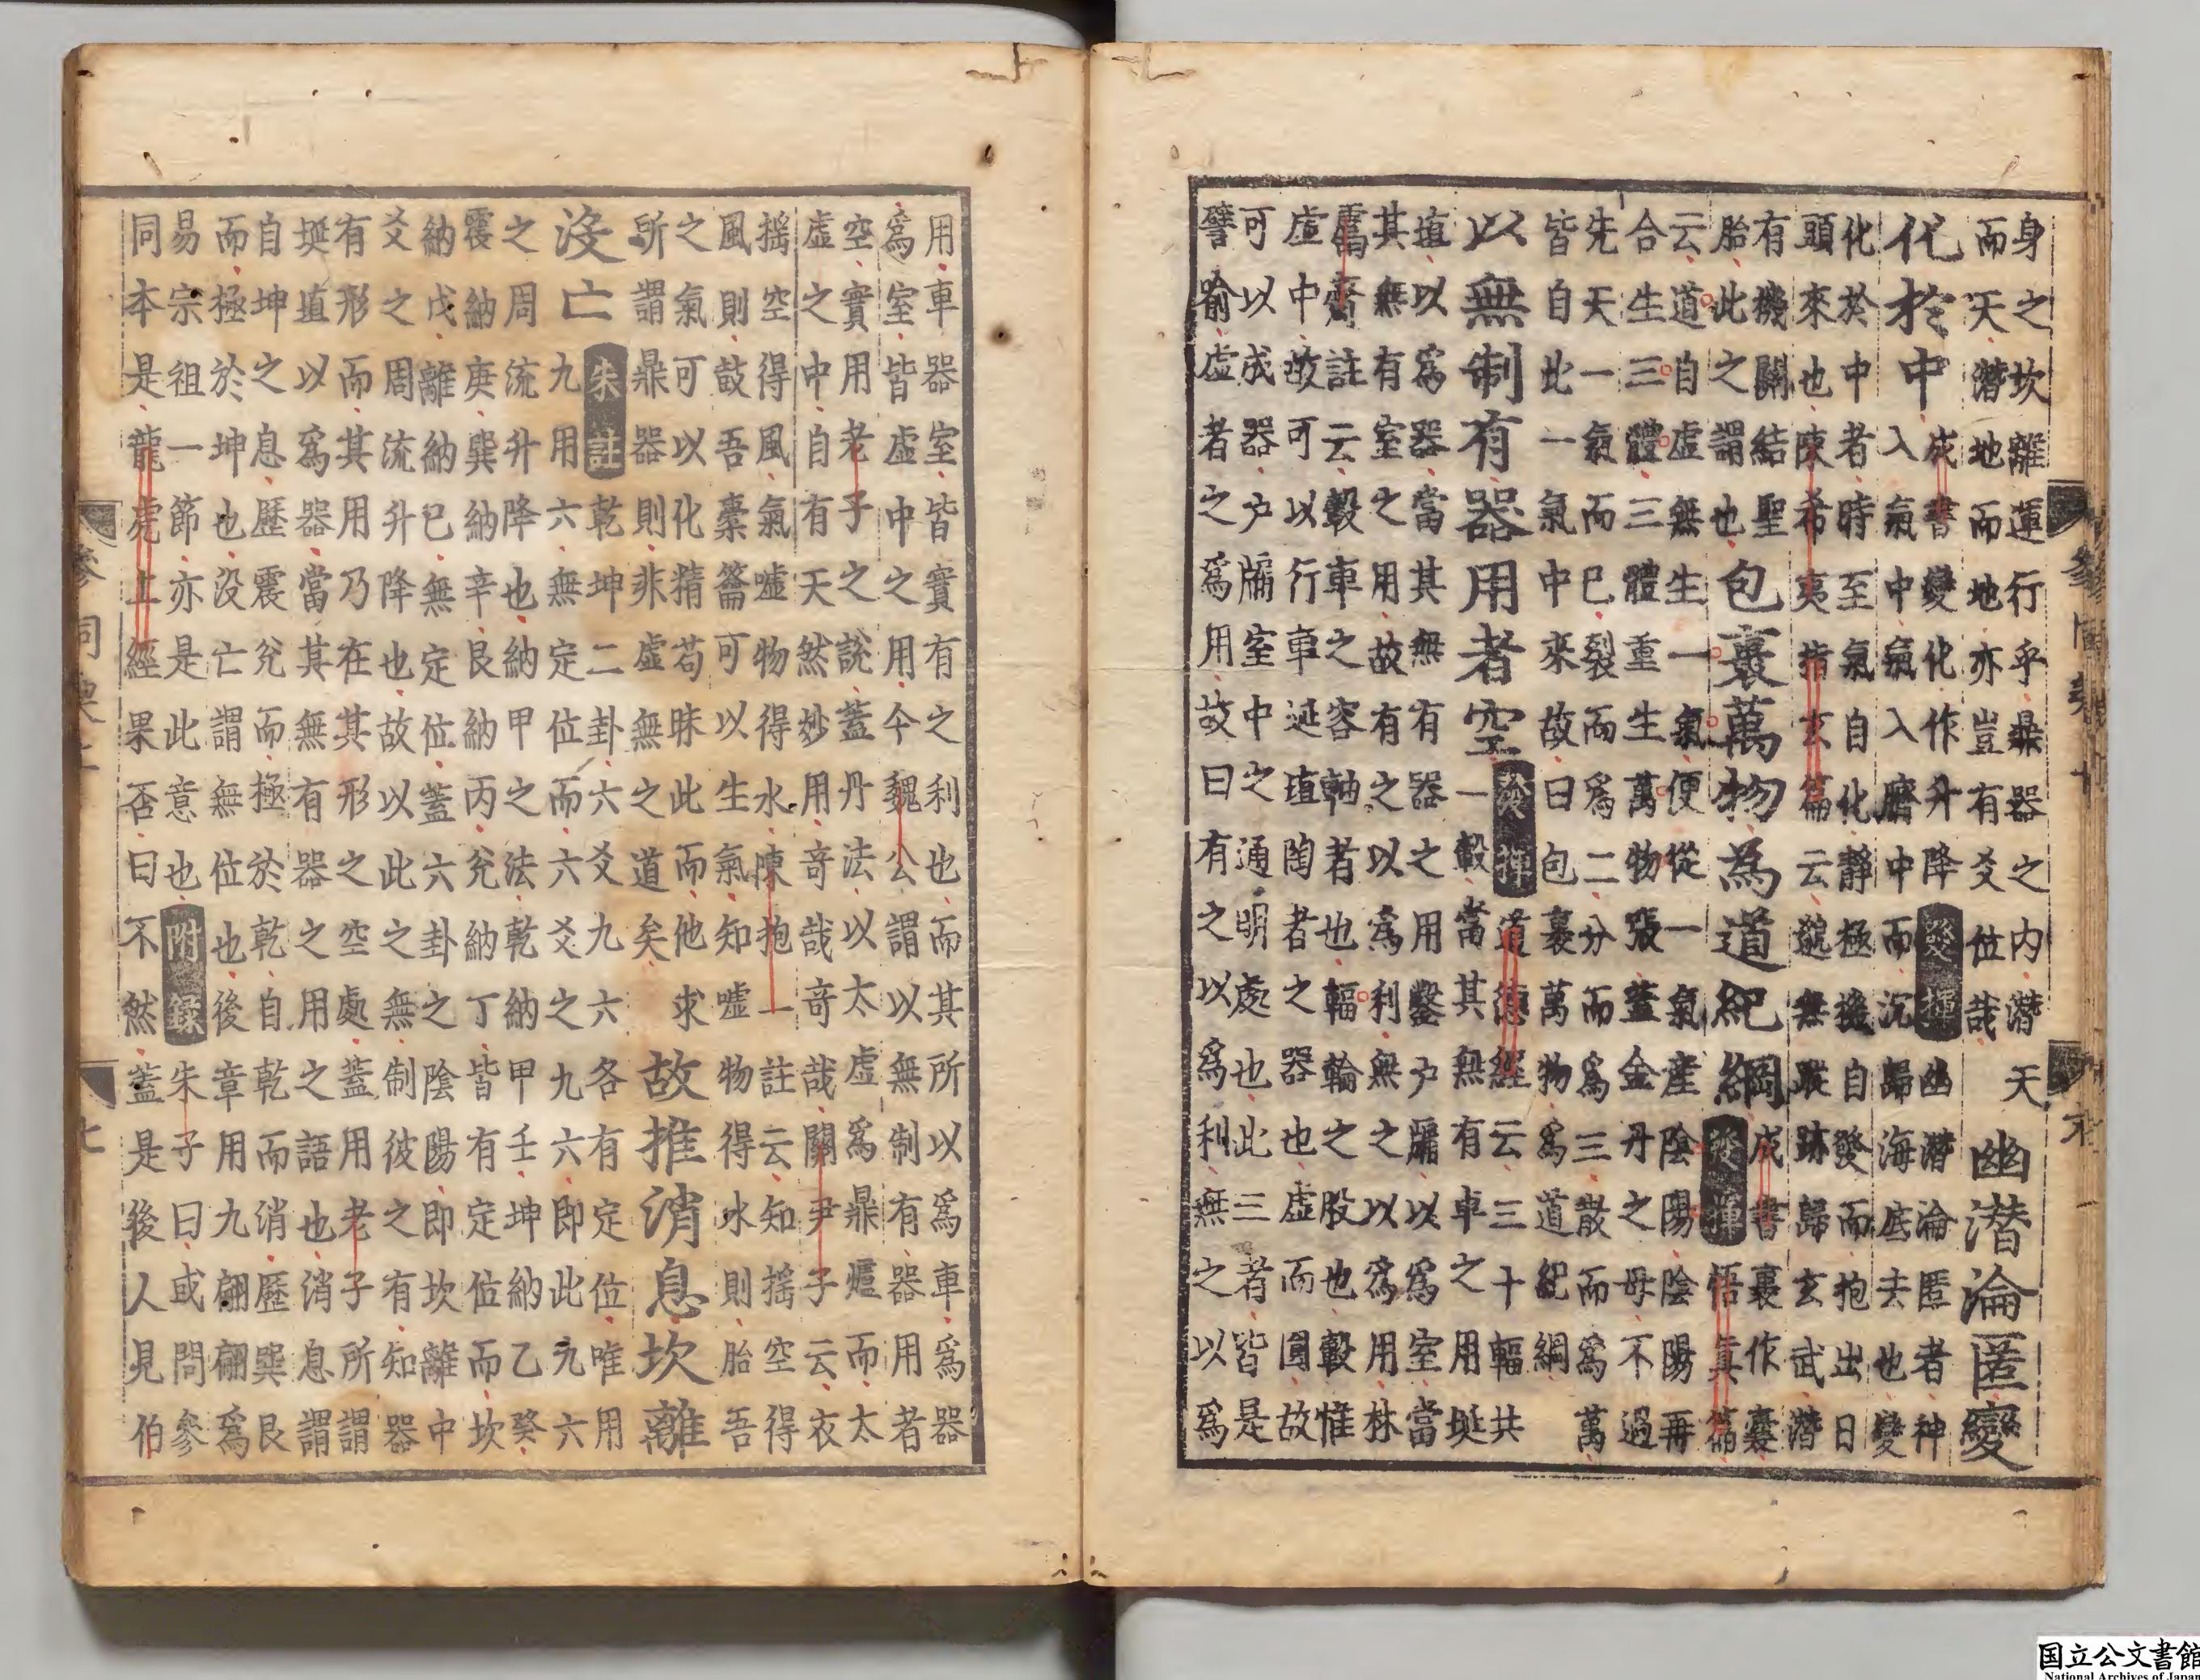 身之坎離運行乎鼎器之內潛天
而天潛地而地亦豈有爻位哉
幽潛淪匿變
化於中
成書變化作升降 發揮 幽潛淪匿者神
入氣中氣入臍中而沉歸海底去也變
化於中者時至氣自化靜極機自發而抱出日
頭來也陳希夷指玄篇云無蹤跡歸玄武潛
有機關結聖
胎此之謂也
包裹萬物為道紀綱
成書裹作囊
發揮 悟真篇
云道自虛無生一氣便從一氣產陰陽陰陽再
合生三體三體重生萬物張蓋金丹之母不過
先天一氣而已裂而為二分而為三散而為萬
皆自此一氣中來故曰包裹萬物為道紀綱
以無制有器用者空
發揮 道德經云三十輻共
一轂當其無有車之用埏
埴以為器當其無有器之用鑿戶牖以為室當
其無有室之用故有之以為利無之以為用林
鬳齋註云轂車之容軸者也輻輪之股也轂惟
虛中故可以行車埏埴陶者之器也虛而圓故
可以成器戶牖室中之通明處也此三者皆是
譬喻虛者之為用故曰有之以為利無之以為
用車器室皆實有之利也而其所以為車為器
為室皆虛中之用今魏公謂以無制有器用者
空實用老子之說蓋丹法以太虛為鼎爐而太
虛之中自有天然妙用奇哉奇哉關尹子云衣
搖空得風氣噓物得水陳抱一註云知搖空得
風則鼓吾橐籥可以生氣知噓物得水則胎吾
之氣可以化精苟昧此而他求
所謂鼎器則非虛無之道矣
故推消息坎離
沒亡
朱註 乾坤二卦六爻九六各有定位唯用
九用六無定位而六爻之九六即此九六
之周流升降也納甲之法乾納甲壬坤納乙癸
震納庚巽納辛艮納丙兌納丁皆有定位而坎
納戊離納巳無定位蓋六卦之陰陽即坎離中
爻之周流升降也故以此之無制彼之有知器
有形而其用乃在其形之空處蓋用老子所謂
埏埴以為器當其無有器之用之語也消息謂
自坤之息歷震兌而極於乾自乾而消歷巽艮
而極於坤也沒亡謂無位也後章用九翩翩為
易宗祖一節亦是此意也 附錄 朱子曰或問參
同本是龍虎上經果否曰不然蓋是後人見伯
国立公文書館
National Archives of Japan